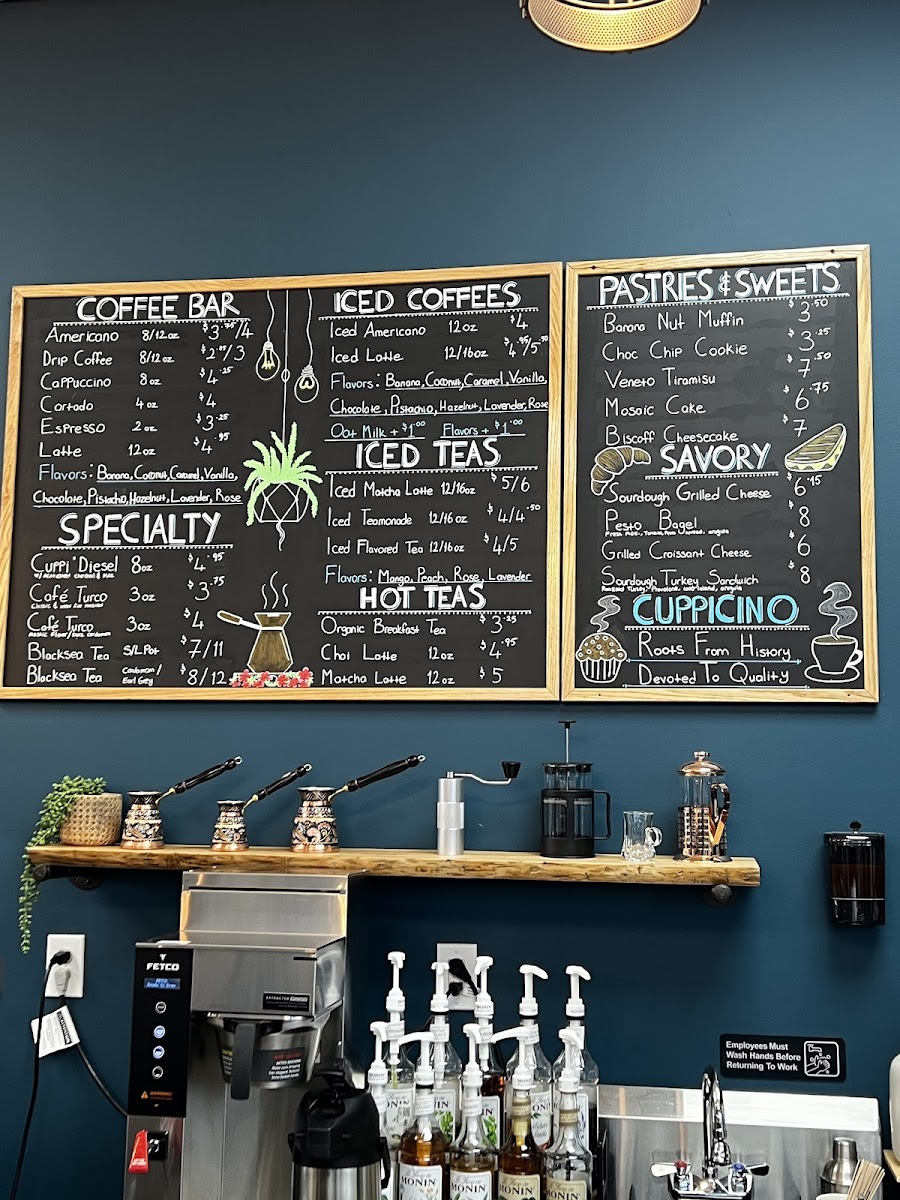 COFFEE BAR
Americano 8/12oz $3.75/4
Drip Coffee 8/12oz $2.85/3
Cappuccino 8oz $4.25
Cortado 4oz $4
Espresso 2oz $3.25
Latte 12oz $4.95
Flavors: Banana, Coconut, Caramel, Vanilla,
Chocolate, Pistachio, Hazelnut, Lavender, Rose
SPECIALTY
Cuppi'Diesel 8oz $4.95
Café Turco 3oz $3.75
Café Turco 3oz $4
Blacksea Tea S/L Pot $7/11
Blacksea Tea Cardamom/ Earl Grey $8/12
ICED COFFEES
Iced Americano 12oz $4
Iced Latte 12/16oz $4.95/5.50
Flavors: Banana, Coconut, Caramel, Vanilla,
Chocolate, Pistachio, Hazelnut, Lavender, Rose
Oat Milk + $1.00 Flavors + $1.00
ICED TEAS
Iced Matcha Latte 12/16oz $5/6
Iced Teamonade 12/16oz $4/4.50
Iced Flavored Tea 12/16oz $4/5
Flavors: Mango, Peach, Rose, Lavender
HOT TEAS
Organic Breakfast Tea $3.25
Chai Latte 12oz $4.95
Matcha Latte 12oz $5
PASTRIES & SWEETS
Banana Nut Muffin $3.50
Choc Chip Cookie $3.25
Veneto Tiramisu $7.50
Mosaic Cake $6.75
Biscoff Cheesecake $7
SAVORY
Sourdough Grilled Cheese $6.45
Pesto Bagel $8
Grilled Croissant Cheese $6
Sourdough Turkey Sandwich $8
CUPPICINO
Roots From History
Devoted To Quality
FETCO
FETCO
Ready to Brew
EXTRACTOR
WARNING
MONIN
MONIN
MONIN
MONIN
MONIN
Employees Must
Wash Hands Before
Returning To Work